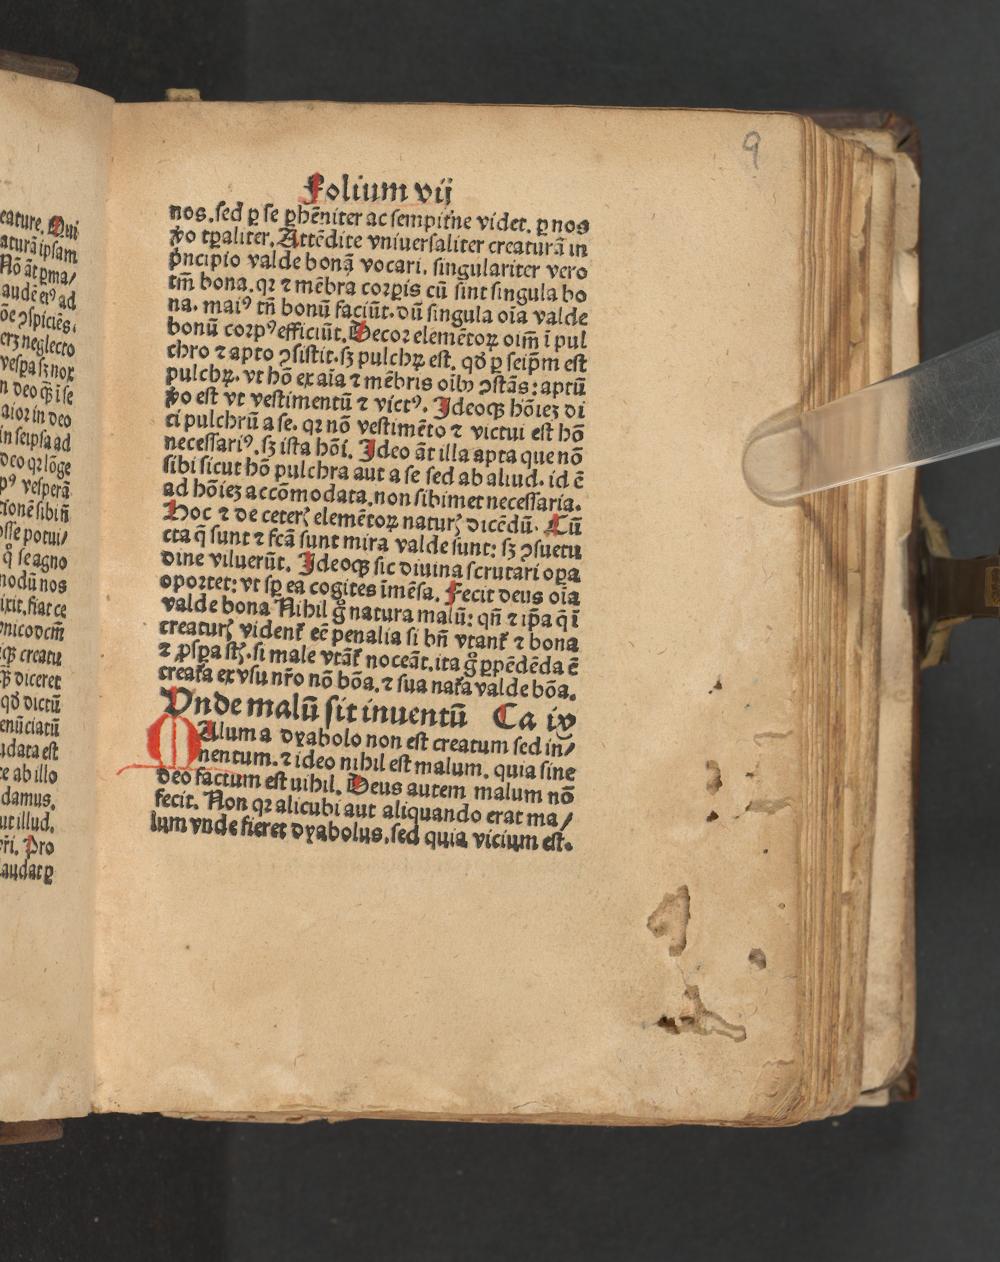 eature. Qui
aturā ipsam
Nō āt ꝑma/
laudē eiꝰ ad
ōe ꝯspiciēs.
neglecto
vesꝑa sꝫ nox
n deo qꝫ ī se
aior in deo
in seipsa ad
deo qꝛ lōge
pꝰ vesperā
ctionē sibi n̄
osse potui/
se agno
modū nos
ixit. fiat ce
vnico dcm̄
qꝫ creatu
qꝫ diceret
qd̄ dictū
enūciatū
udata est
te ab illo
damus.
ut illud.
Pro
laudat ꝑ
9
Folium vij
nos. sed ꝑ se ꝑhēniter ac sempitne videt. ꝑ nos
ꝟo tꝑaliter. Attēdite vniuersaliter creaturā in
pͥncipio valde bonā vocari. singulariter vero
tm̄ bona. qꝛ ⁊ mēbra corꝑis cū sint singula bo
na. maiꝰ tn̄ bonū faciūt. dū singula oīa valde
bonū corpꝰ efficiūt. Decor elemētoꝝ oīm̄ ī pul
chro ⁊ apto ꝯsistit. sꝫ pulchꝝ est. qd̄ ꝑ seip̄m est
pulchꝝ. vt hō ex aīa ⁊ mēbris oīb̰ ꝯstās: aptū
ꝟo est vt vestimentū ⁊ victꝰ. Ideoqꝫ hōieꝫ di
ci pulchrū a se. qꝛ nō vestimēto ⁊ victui est hō
necessariꝰ. sꝫ ista hōi. Ideo āt illa apta que nō
sibi sicut hō pulchra aut a se sed ab aliud. id ē
ad hōieꝫ accōmodata. non sibimet necessaria.
Hoc ⁊ de ceterꝭ elemētoꝝ naturꝭ dicēdū. Cū
cta q̄ sunt ⁊ fcā sunt mira valde sunt: sꝫ ꝯsuetu
dine viluerūt. Ideoqꝫ sic diuina scrutari oꝑa
oportet: vt sꝑ ea cogites īmēsa. Fecit deus oīa
valde bona Nihil gͦ natura malū: qn̄ ⁊ ip̄a q̄ ī
creaturꝭ vident̄ eē penalia si bn̄ vtant̄ ⁊ bona
⁊ ꝓsꝑa stꝭ. si male vtāt̄ noceāt. ita gͦ ꝑpēdēda ē
creat̄a ex vsu nr̄o nō bōa. ⁊ sua nat̄a valde bōa.
Vnde malū sit inuentū Ca ix
MAlum a dyabolo non est creatum sed in/
nentum. ⁊ ideo nihil est malum. quia sine
deo factum est uihil. Deus autem malum nō
fecit. Non qꝛ alicubi aut aliquando erat ma/
lum vnde fieret dyabolus. sed quia vicium est.